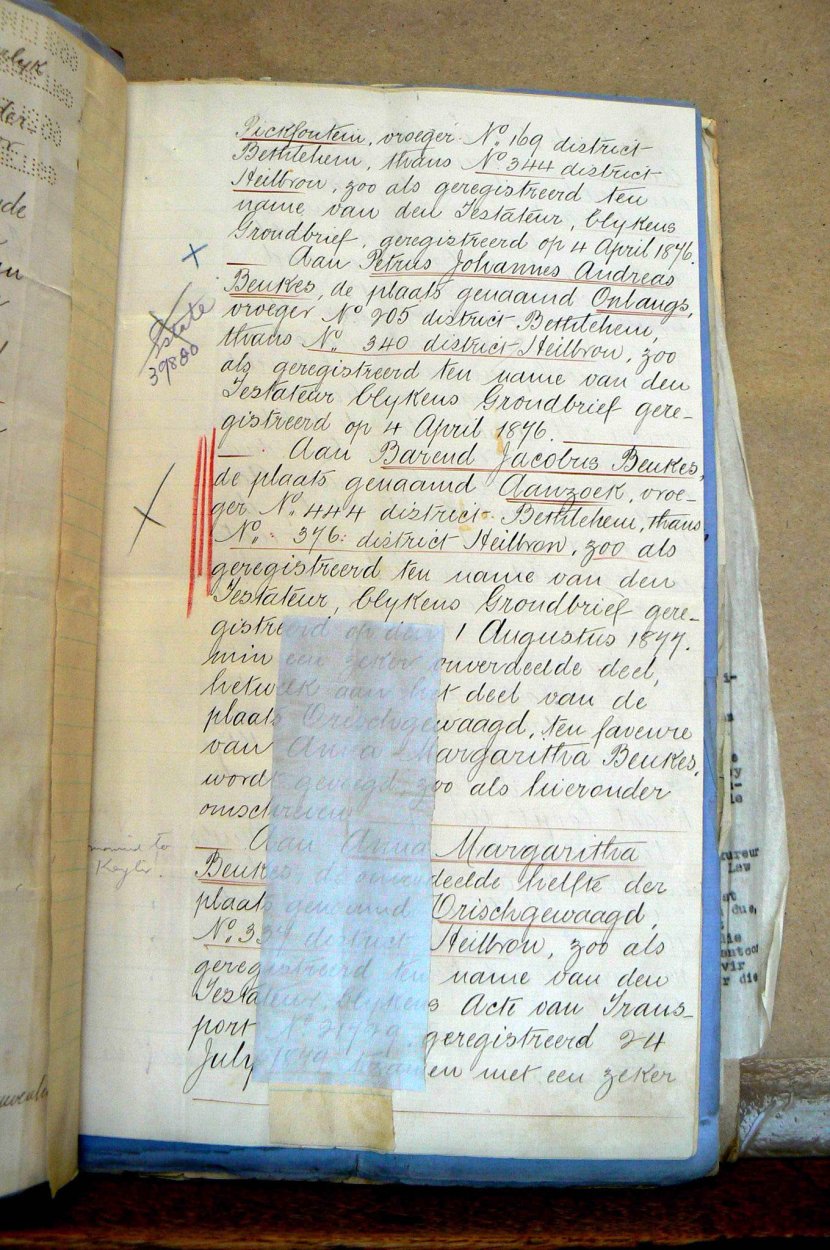 Pickfontein, vroeger No. 169 district
Bethlehem, thans No. 344 district
Heilbron, zoo als geregistreerd ten
name van den Testateur, blykens
Grondbrief, geregistreerd op 4 April 1876.
Aan Petrus Johannes Andreas
Beukes, de plaats genaamd Onlangs,
vroeger No 205 district Bethlehem,
thans No. 340 district Heilbron, zoo
als geregistreerd ten name van den
Testateur blykens Grondbrief gere-
gistreerd op 4 April 1876.
Aan Barend Jacobus Beukes,
de plaats genaamd Aanzoek, vroe-
ger No. 444 district Bethlehem, thans
No. 376: district Heilbron, zoo als
geregistreerd ten name van den
Testateur, blykens Grondbrief gere-
gistreerd op den 1 Augustus 1877.
min een zeker onverdeelde deel,
hetwelk aan het deel van de
plaats Vrischgewaagd, ten faveure
van Anna Margaritha Beukes,
wordt gevoegd, zoo als hieronder
omschreven
Aan Anna Margaritha
Beukes de onverdeelde helfte der
plaats genaamd Vrischgewaagd,
No. 334 district Heilbron, zoo als
geregistreerd ten name van den
Testateur, blykens Acte van Trans-
port No geregistreerd 24
July en met een zeker
X
Estate
39800
X
married to